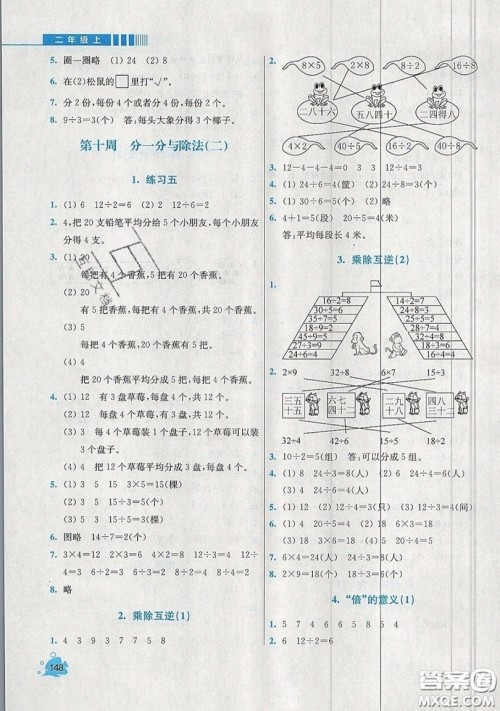 二年级上
5. 圈一圈略 (1) 24 (2) 8
6. 在(2)松鼠的□里打“✓”。
7. 分 2 份,每份 4 个或者分 4 份,每份 2 个
8. 9÷3=3(个) 答:每头大象分得 3 个椰子。
第十周 分一分与除法(二)
1. 练习五
1. (1) 6 12÷2=6 (2) 4 12÷3=4
2. 4,把 20 支铅笔平均分给 5 个小朋友,每个小朋友分得 4 支。
3. (1) 5
每把有 4 个香蕉,5 把有 20 个香蕉。
(2) 20
有 5 把香蕉,每把有 4 个,共有 20 个香蕉。
(3) 5
20 个香蕉,每把有 4 个,共有 5 把香蕉。
(4) 4
20 个香蕉平均分成 5 把,每把有 4 个香蕉。
4. (1) 12 有 3 盘草莓,每盘有 4 个。
(2) 12 每盘有 4 个草莓,有 3 盘。
(3) 3 每 4 个草莓装 1 个盘子,可以装 3 个盘子。
(4) 4 把 12 个草莓平均分成 3 盘,每盘有 4 个。
5. (1) 3 5 15 3×5=15(棵)
(2) 15 3 5 15÷3=5(棵)
(3) 15 5 3 15÷5=3(棵)
6. 图略 14÷7=2(个)
7. 3×4=12 12÷3=4 12÷4=3 6×2=12
12÷6=2 12÷2=6 6÷2=3 8÷2=4
8. 略
2. 乘除互逆(1)
1. 4 3 9 3 7 7 5 8
148
2.
8×5 2×8 8÷2 16÷2
二八十六 五八四十 二四得八
4×2 40÷5 16÷8 40÷8
3. 12-4-4-4=0 12÷4=3
4. (1) 20÷5=4(筐) (2) 20÷4=5(筐)
5. (1) 24÷8=3(个) (2) 略
6. 4+1=5(段) 20÷5=4(米)
答:平均每段长 4 米。
3. 乘除互逆(2)
1.
16÷2=8
30÷5=6
35÷5=7
18÷9=2
32÷8=4
27÷3=9
45÷9=5
28÷7=4
24÷6=4
2. 2×9 32÷8 15÷3 42÷7
三五十五 六七四十二 二九十八 四八三十二
32÷4 42÷6 15÷5 18÷2
3. 10÷2=5(组) 答:可以分成 5 组。
4. (1) 24 3 24÷3=8(人)
(2) 24 6 24÷6=4(人)
5. (1) 12÷4=3(只) (2) 12÷3=4(个)
6. (1) 3 18 6×3=18 (2) 6 18 3×6=18
(3) 18÷6=3 18÷3=6
7. 6×4=24(人) 24÷8=3(人)
8. 2×9=18(个) 18÷6=3(个)
4. “倍”的意义(1)
1. 2 5 4 5 6 7
2. 7 4 6 12÷2=6
答案圈
MXQE.COM